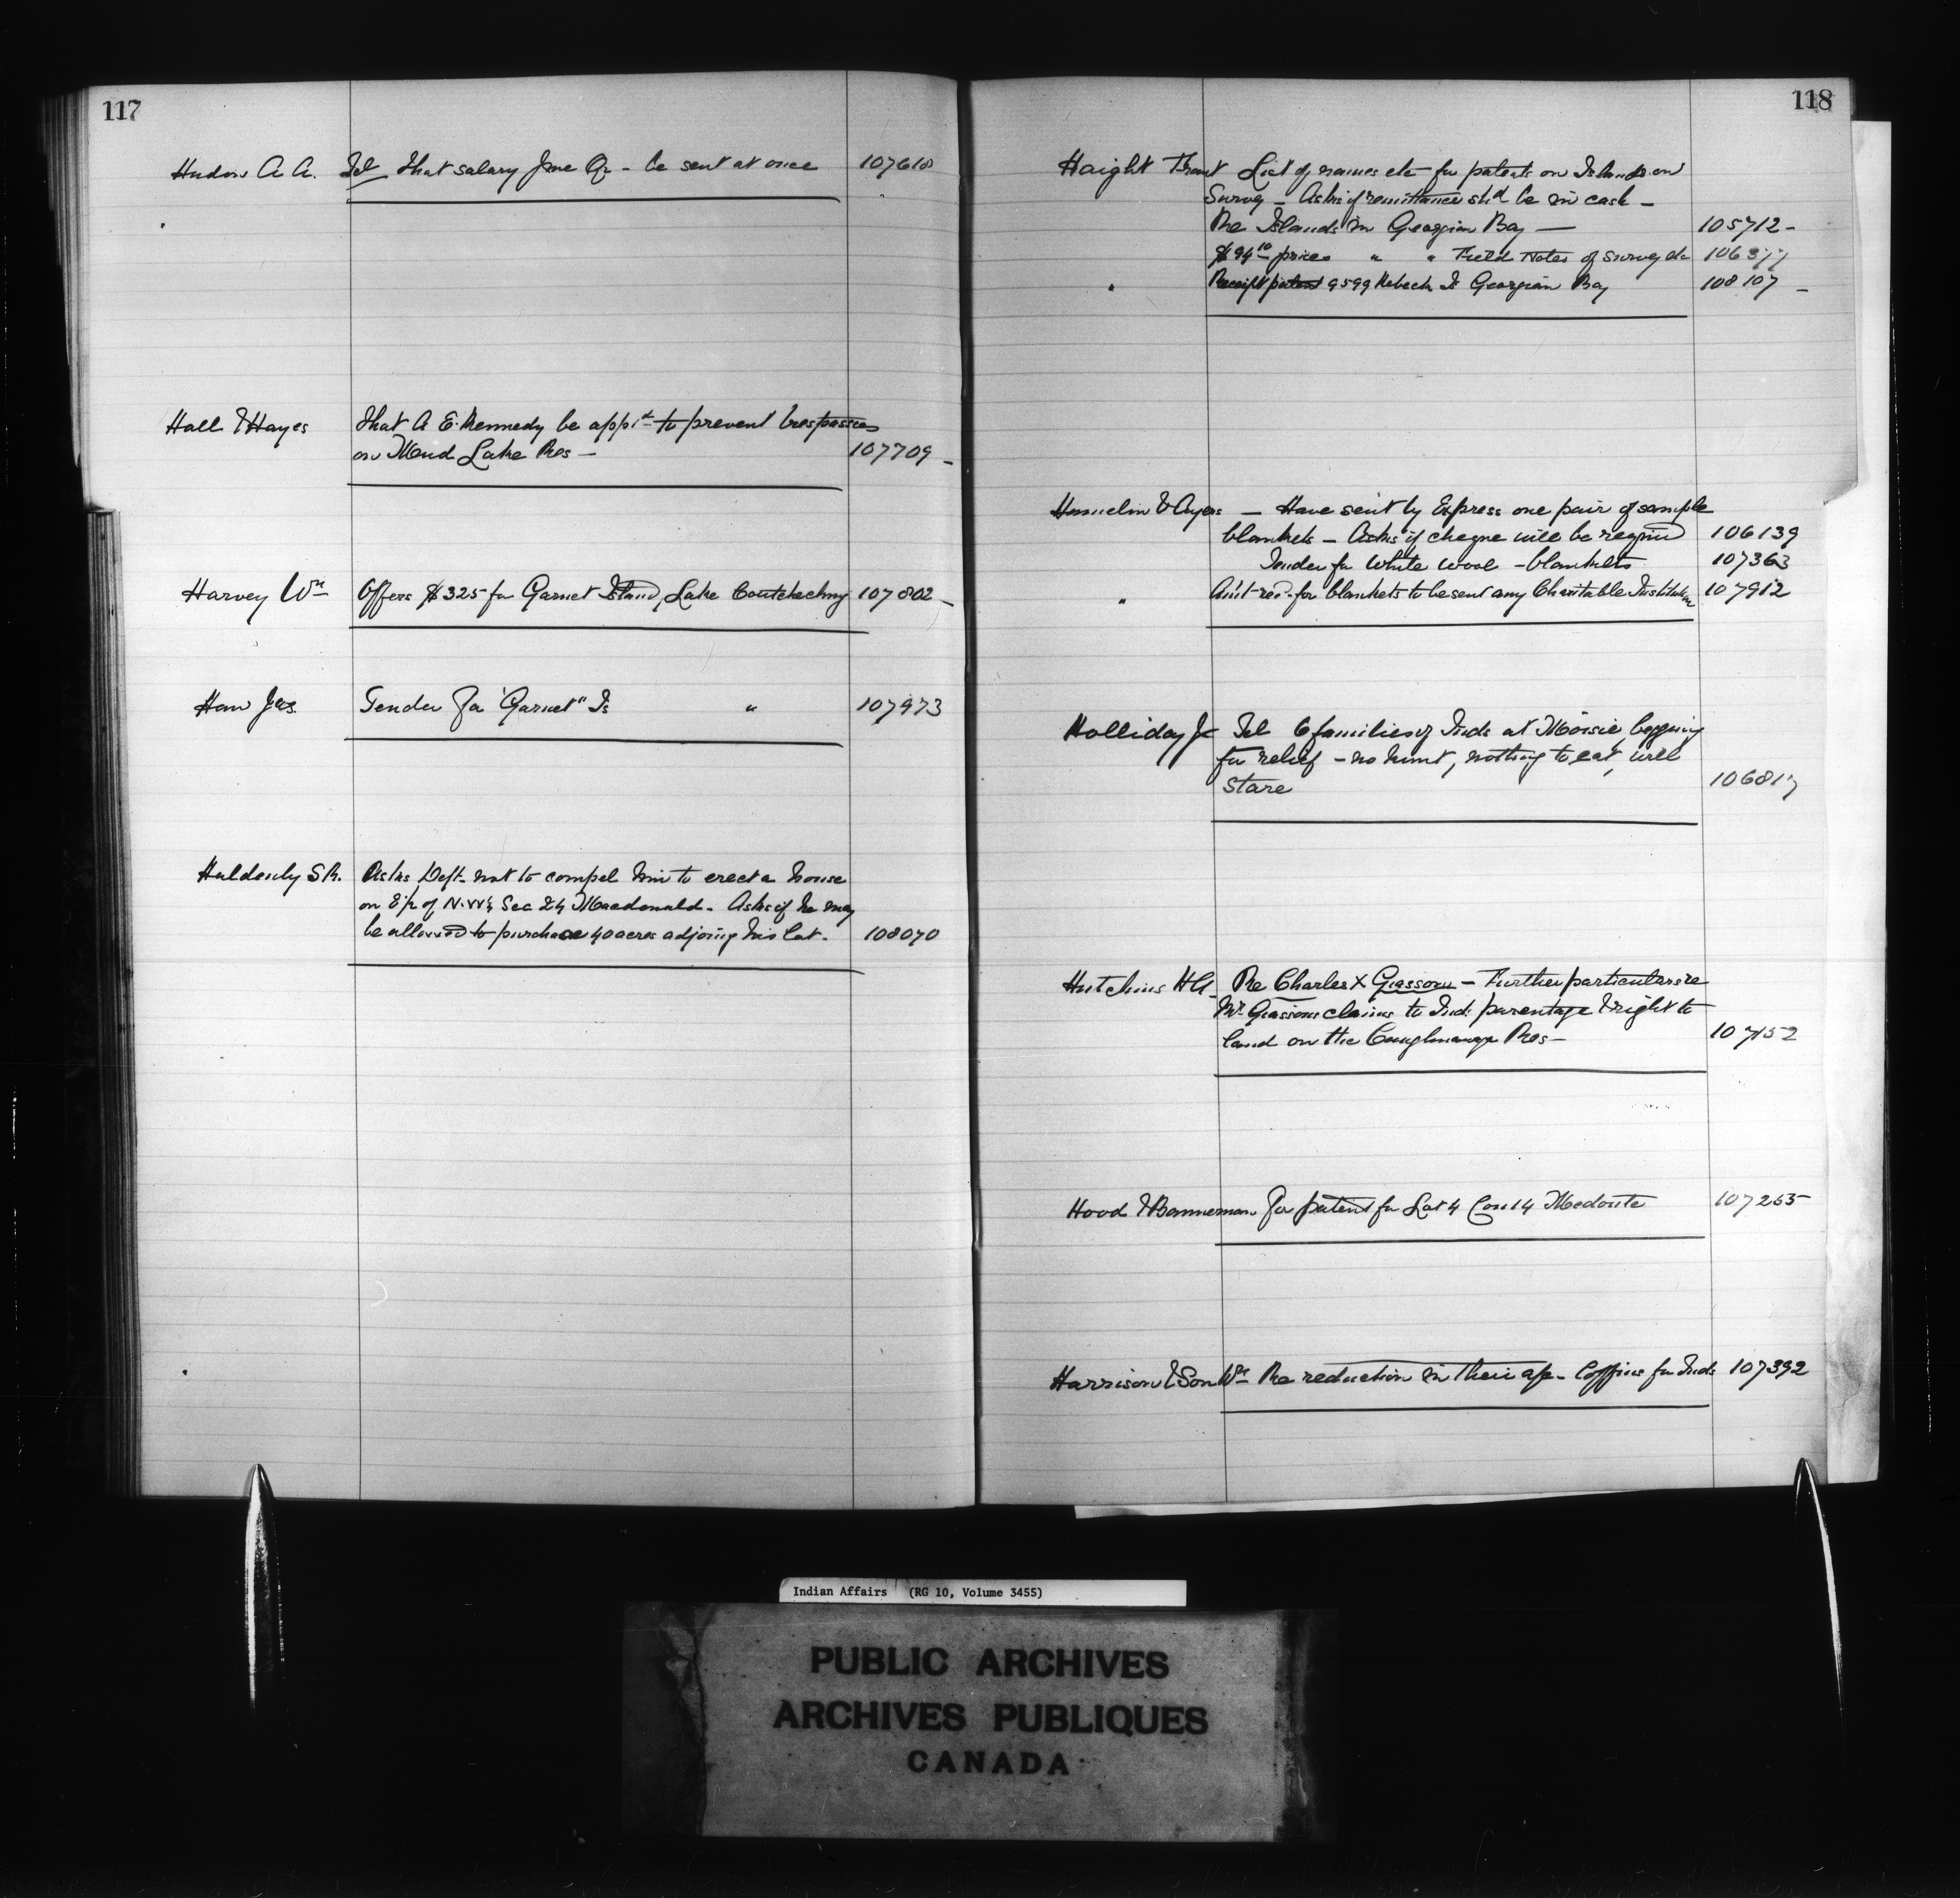 117
Hudon A. A. Tel That salary June Qr - be sent at once 107610
Hall & Hayes That A. E. Kennedy be app'td to prevent trespasses
on Mud Lake Res — 107709 -
Harvey Wm Offers $325 for Garnet Island, Lake Coutchiching 107802 -
Haw Jas. Tender for "Garnet" Is " 107973
Asks Dept. not to compel him to erect a house
on E½ of N.W¼ Sec 24 Macdonald - Asks if he may
be allowed to purchase 40 acres adjoing his lot. 108070
118
Haight List of names etc for patents on Islands on
Survey - Asks if remittance shd be in cash -
Re Islands in Georgian Bay — 105712 -
$94 10 prices " " Field Notes of Survey do
" Receipt patent 9599 Georgian Bay 108107 -
Hamelin & Ayers — Have sent by Express one pair of sample
blankets - Asks if cheque will be required 106139
Tender for White Wool - blankets 107363
" Am't red. for blankets to be sent any Charitable Institution 107912
Holliday Jr Tel 6 families of Inds at Moisie, begging
for relief - no hunt, nothing to eat, will
Stare 106817
Hutchins H A. Re Charles X Giasson - Further particulars re
Mr. Giassons claims to Ind. parentage & right to
land on the Caughnawaga Res - 107152
Hood & Bannerman For patent for Lot 4 Con 14 Medonte 107265
Harrison & Son Wm Re reduction in their a/c - Coffins for Inds 107392
Indian Affairs (RG 10, Volume 3455)
PUBLIC ARCHIVES
ARCHIVES PUBLIQUES
CANADA